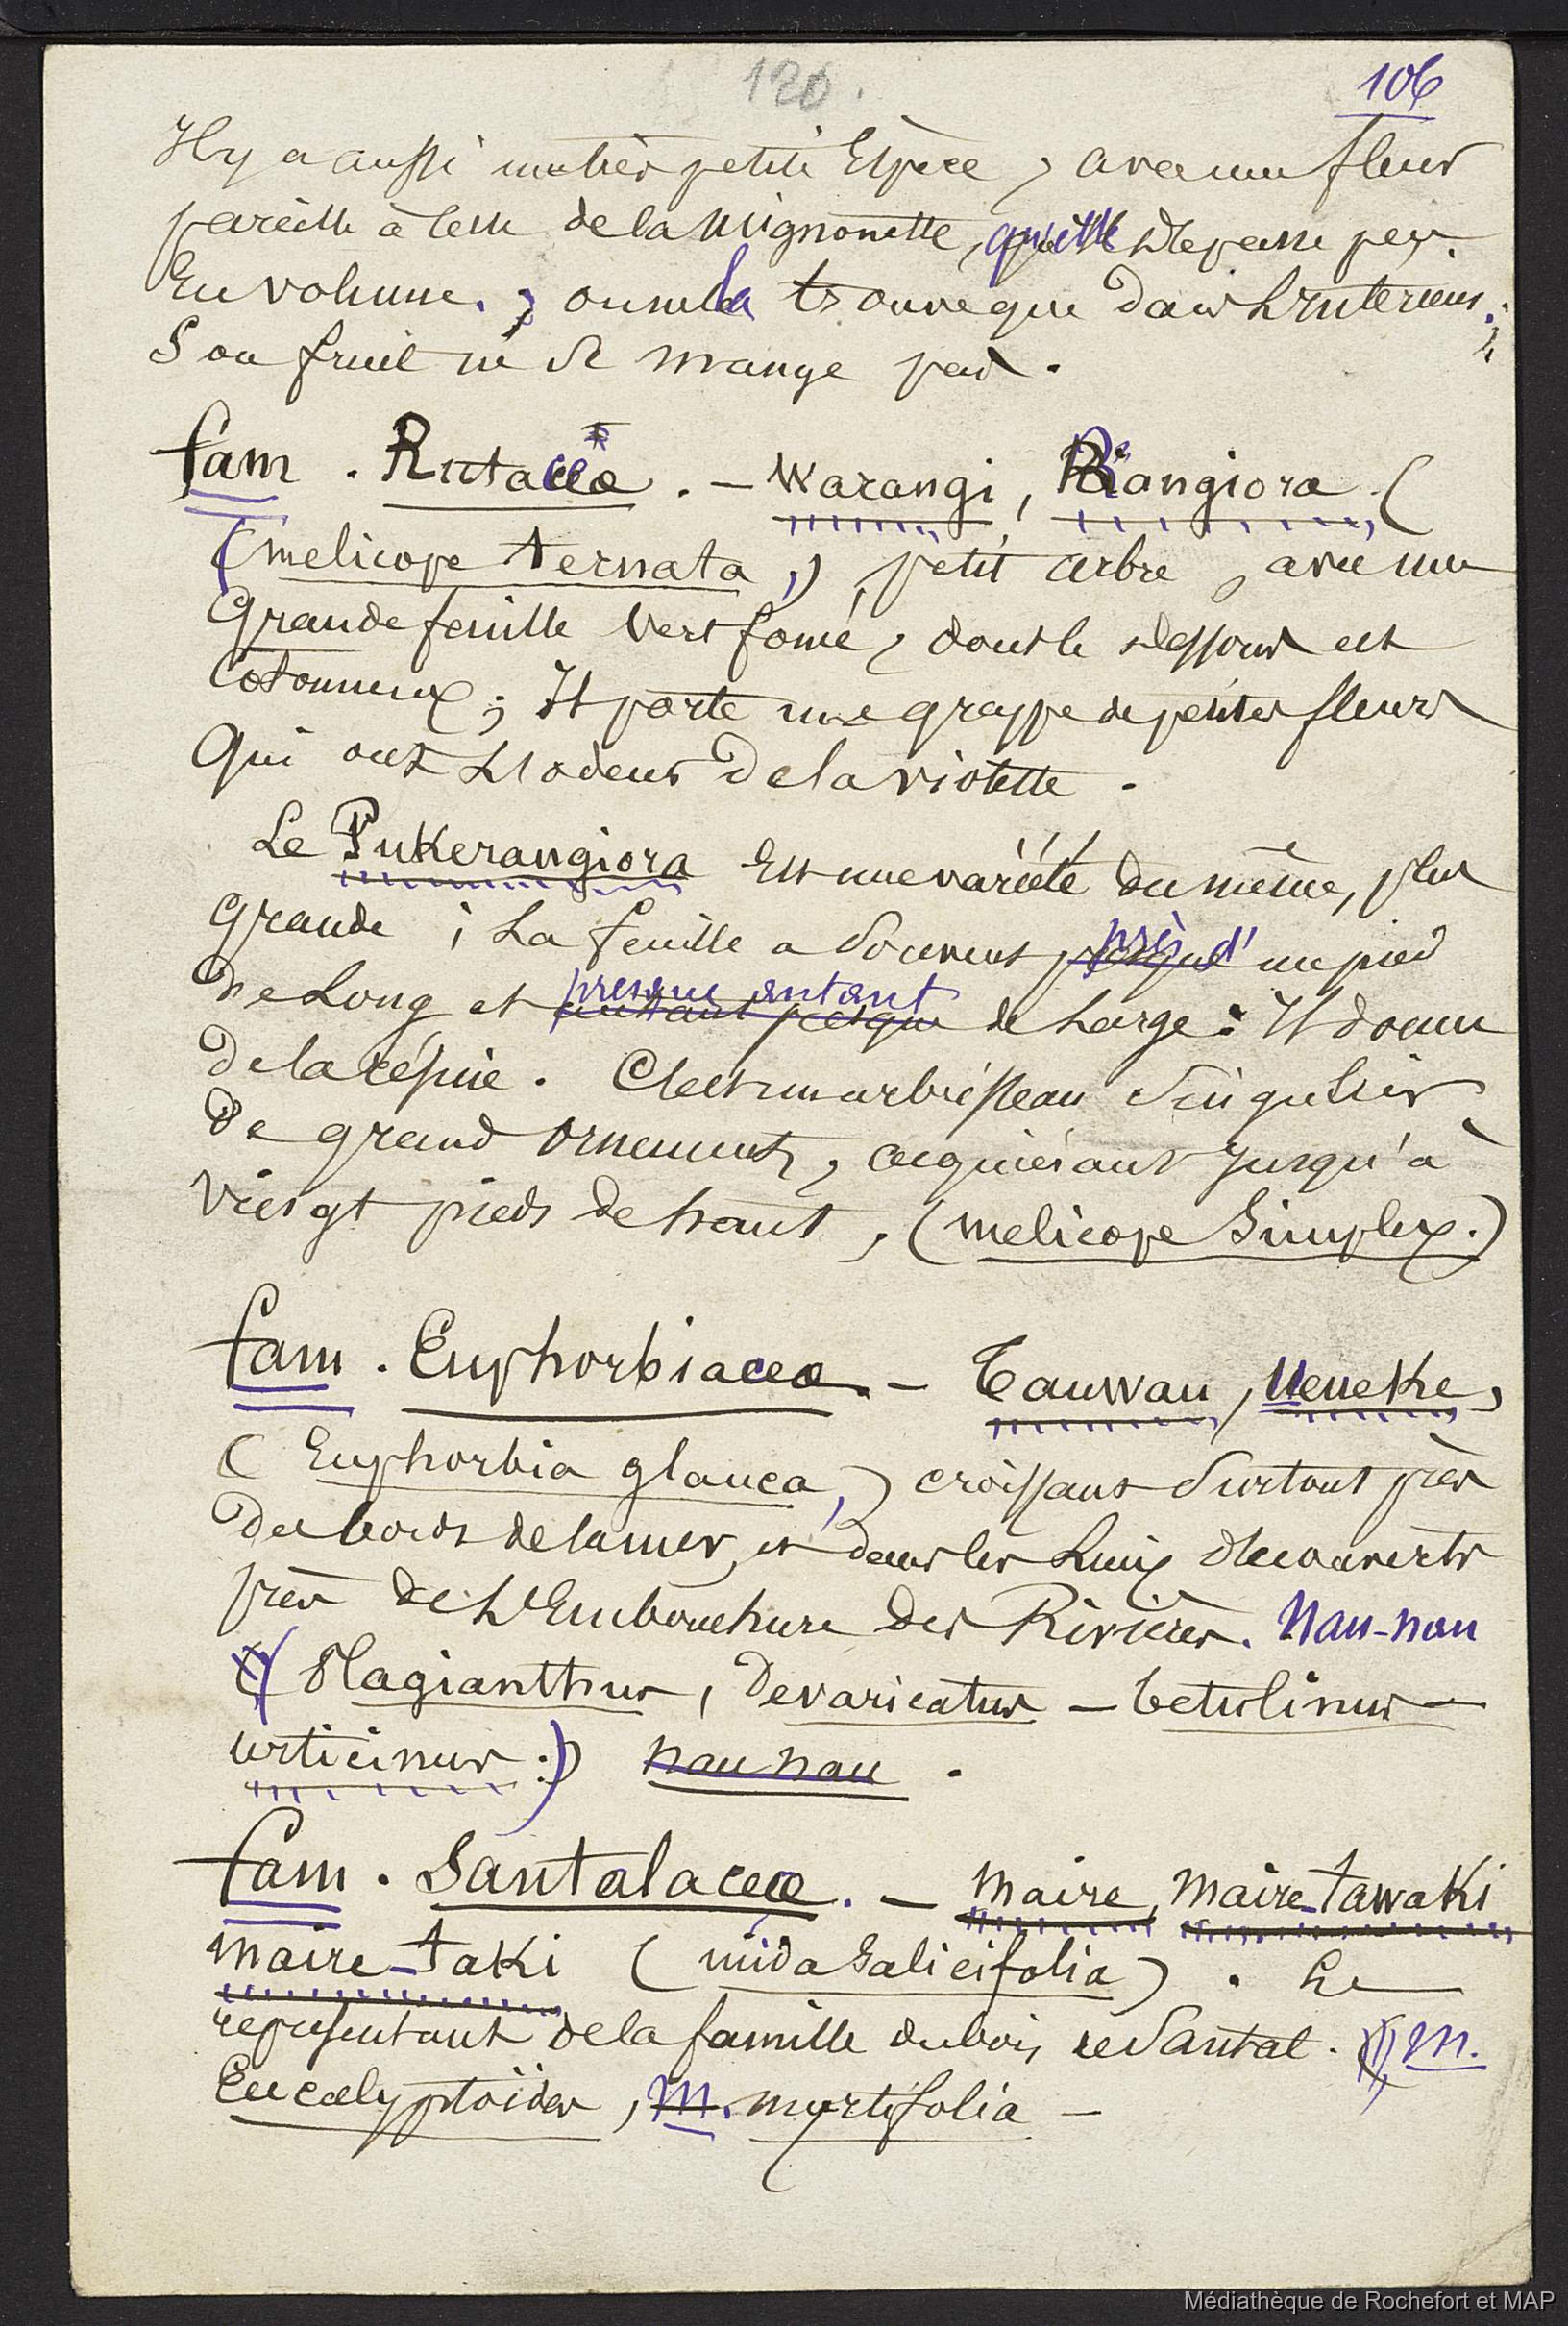 120.
106
Il y a aussi une très petite Espèce, avec une fleur
pareille à celle de la Mignonette, qu'elle dépasse peu
En volume. ; on ne la trouve que dans L'intérieur ;
Son fruit ne se mange pas.
fam. Rutaceæ. — Warangi, Rangiora (
(melicope ternata,) petit arbre, avec une
Grande feuille vert foncé, dont le dessous est
Cotonneux ; Il porte une grappe de petites fleurs
Qui ont L'odeur de la violette.
Le Pukerangiora Est une variété du même, plus
grande ; La feuille a souvent presque près d'un pied
de Long et autant presque presque autant de Large : Il donne
de la résine. C'est un arbrisseau Singulier
De grand Ornement, acquiérant Jusqu'à
vingt pieds de haut, (melicope Simplex.)
fam. Euphorbiaceæ. — Tauwau, Ueueke,
(Euphorbia glauca,) croissant Surtout près
Des bords de la mer, et dans les Lieux découverts
près de L'Embouchure des Rivières. Nau-nau
(Plagianthus, Devaricatus — betulinus —
urticinus.) nau nau.
fam. Santalaceæ. — Maire, Maire-tawaki
maire-taki (mida Salicifolia). Le
représentant de la famille du bois de Santal. M.
Eucalyptoides, M. myrtifolia —
Médiathèque de Rochefort et MAP